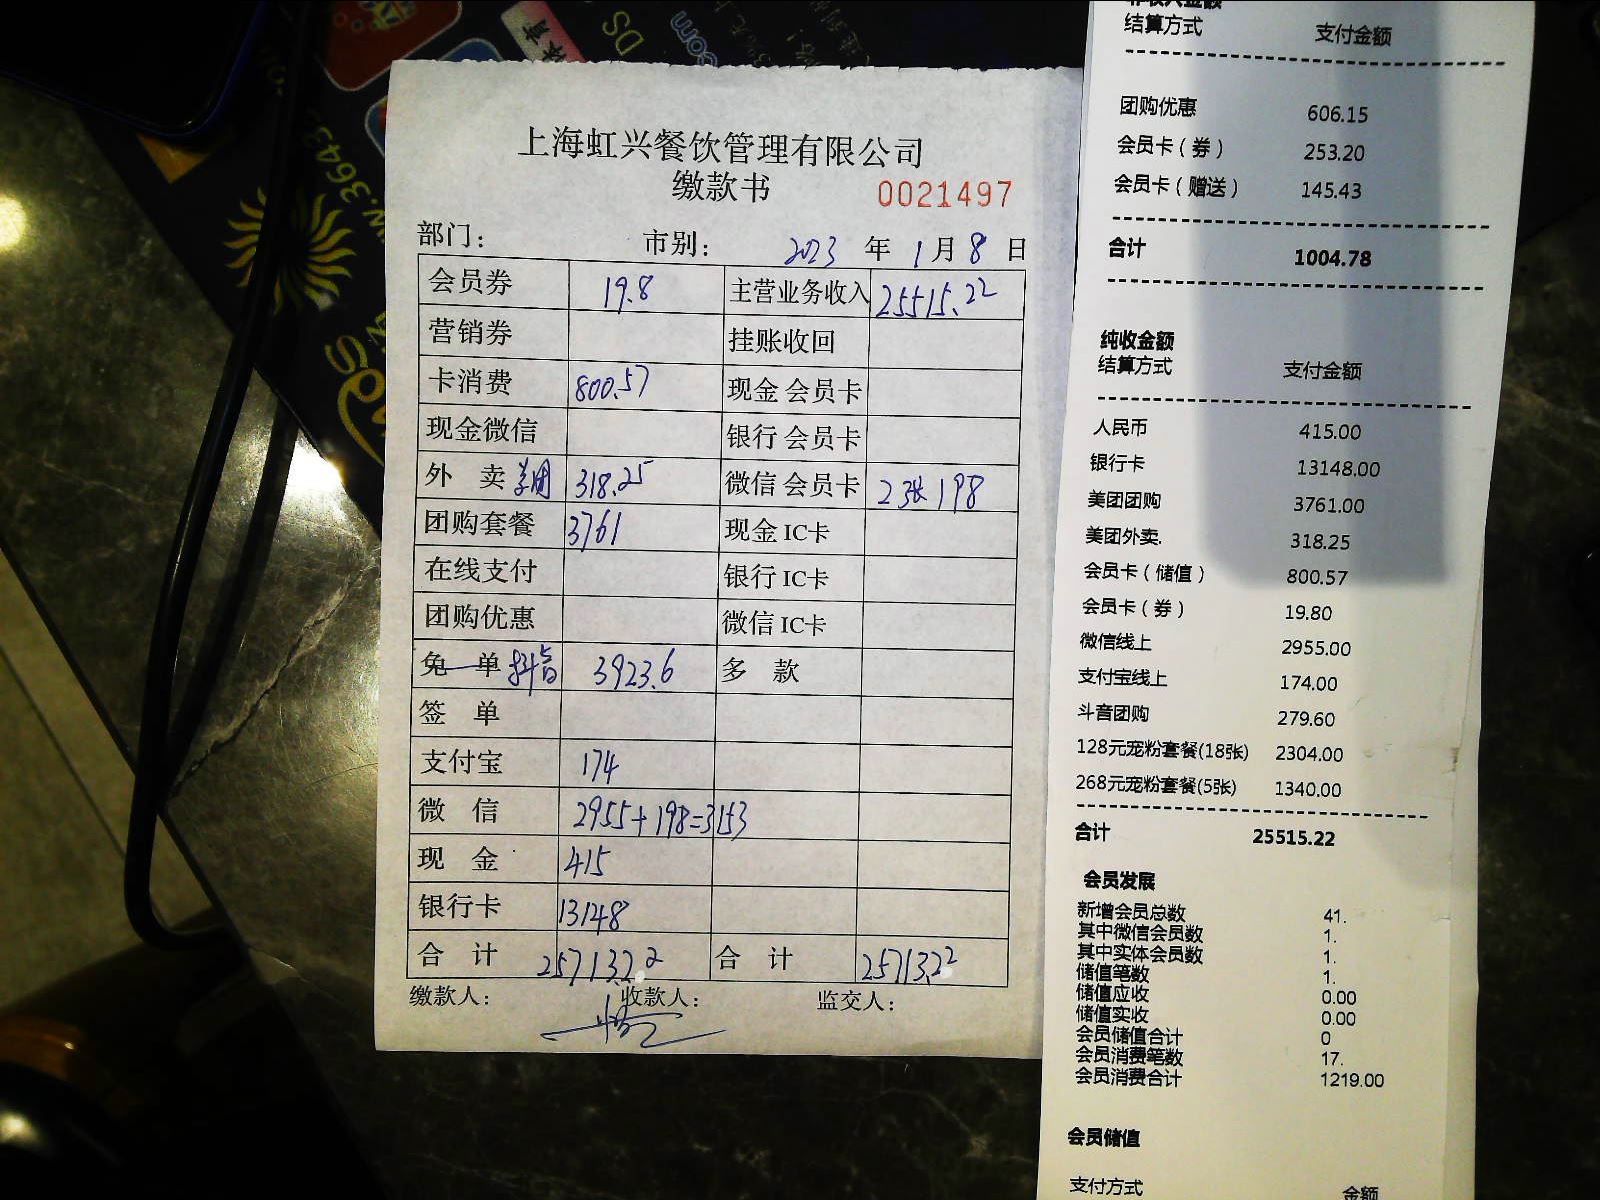 上海虹兴餐饮管理有限公司
缴款书 0021497
部门： 市别： 2023 年 1 月 8 日
会员券 19.8 主营业务收入 25515.22
营销券 挂账收回
卡消费 800.57 现金 会员卡
现金微信 银行 会员卡
外 卖 美团 318.25 微信 会员卡 2张 198
团购套餐 3761 现金 IC卡
在线支付 银行 IC卡
团购优惠 微信 IC卡
免 单 抖音 3923.6 多 款
签 单
支付宝 174
微 信 2955+198=3153
现 金 415
银行卡 13148
合 计 25713.22 合 计 25713.22
缴款人： 收款人： 监交人：
结算方式 支付金额
团购优惠 606.15
会员卡（券） 253.20
会员卡（赠送） 145.43
合计 1004.78
纯收金额
结算方式 支付金额
人民币 415.00
银行卡 13148.00
美团团购 3761.00
美团外卖. 318.25
会员卡（储值） 800.57
会员卡（券） 19.80
微信线上 2955.00
支付宝线上 174.00
斗音团购 279.60
128元宠粉套餐(18张) 2304.00
268元宠粉套餐(5张) 1340.00
合计 25515.22
会员发展
新增会员总数 41.
其中微信会员数 1.
其中实体会员数 1.
储值笔数 1.
储值应收 0.00
储值实收 0.00
会员储值合计 0
会员消费笔数 17.
会员消费合计 1219.00
会员储值
支付方式 金额
DS
com
w.3643